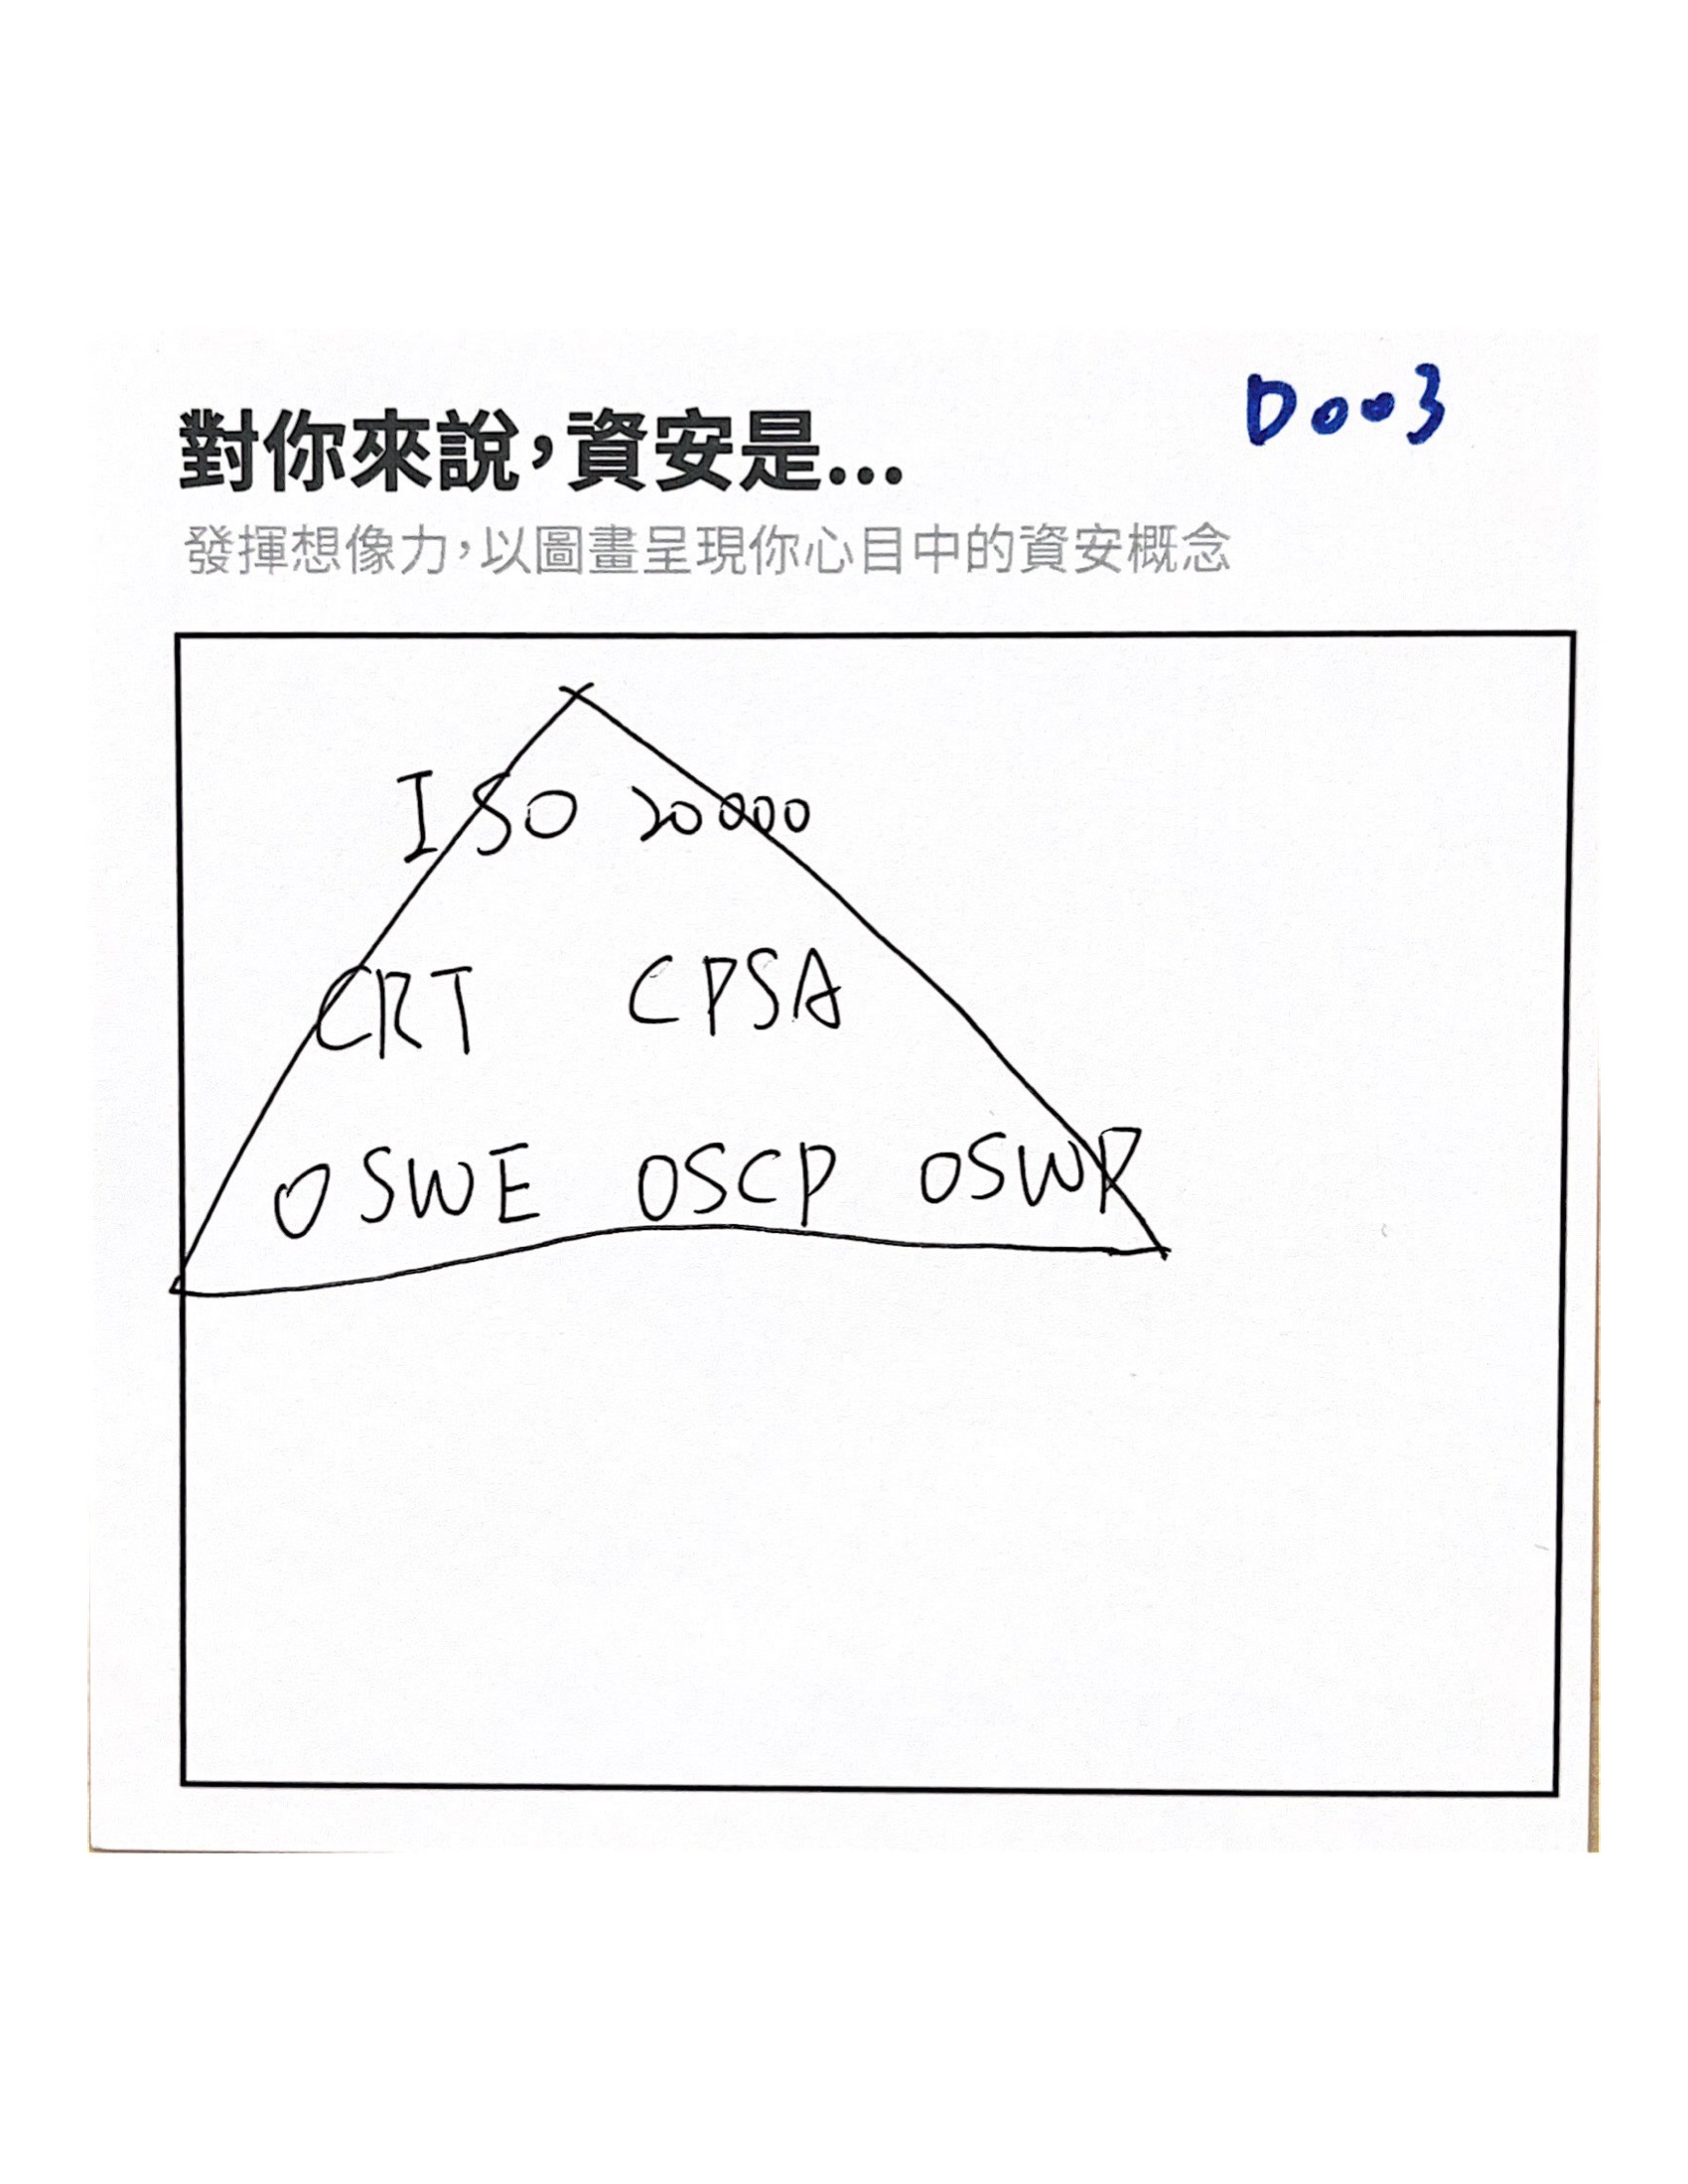 D003
對你來說，資安是...
發揮想像力，以圖畫呈現你心目中的資安概念
ISO 20000
CRT CPSA
OSWE OSCP OSWP